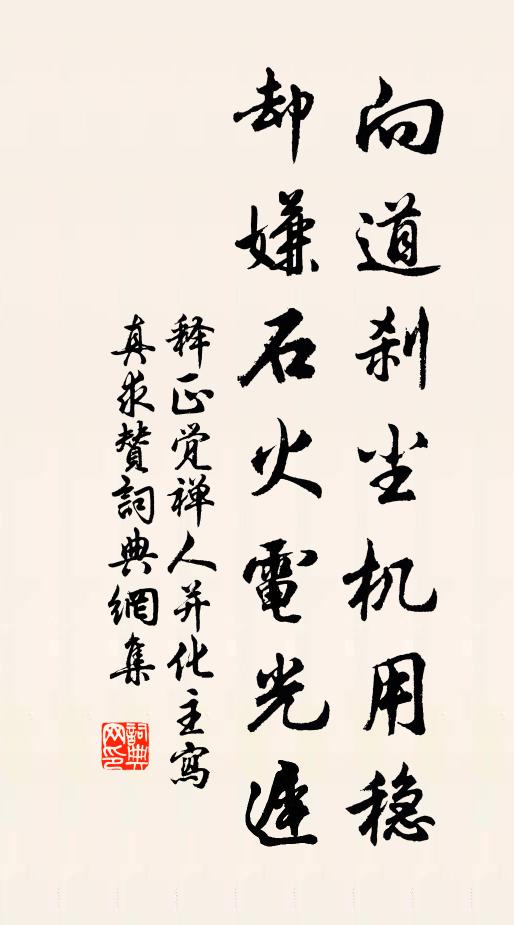 向道刹尘机用稳
却嫌石火電光遲
释正觉禅人并化主寫
真求赞詞典網集
詞典
网印